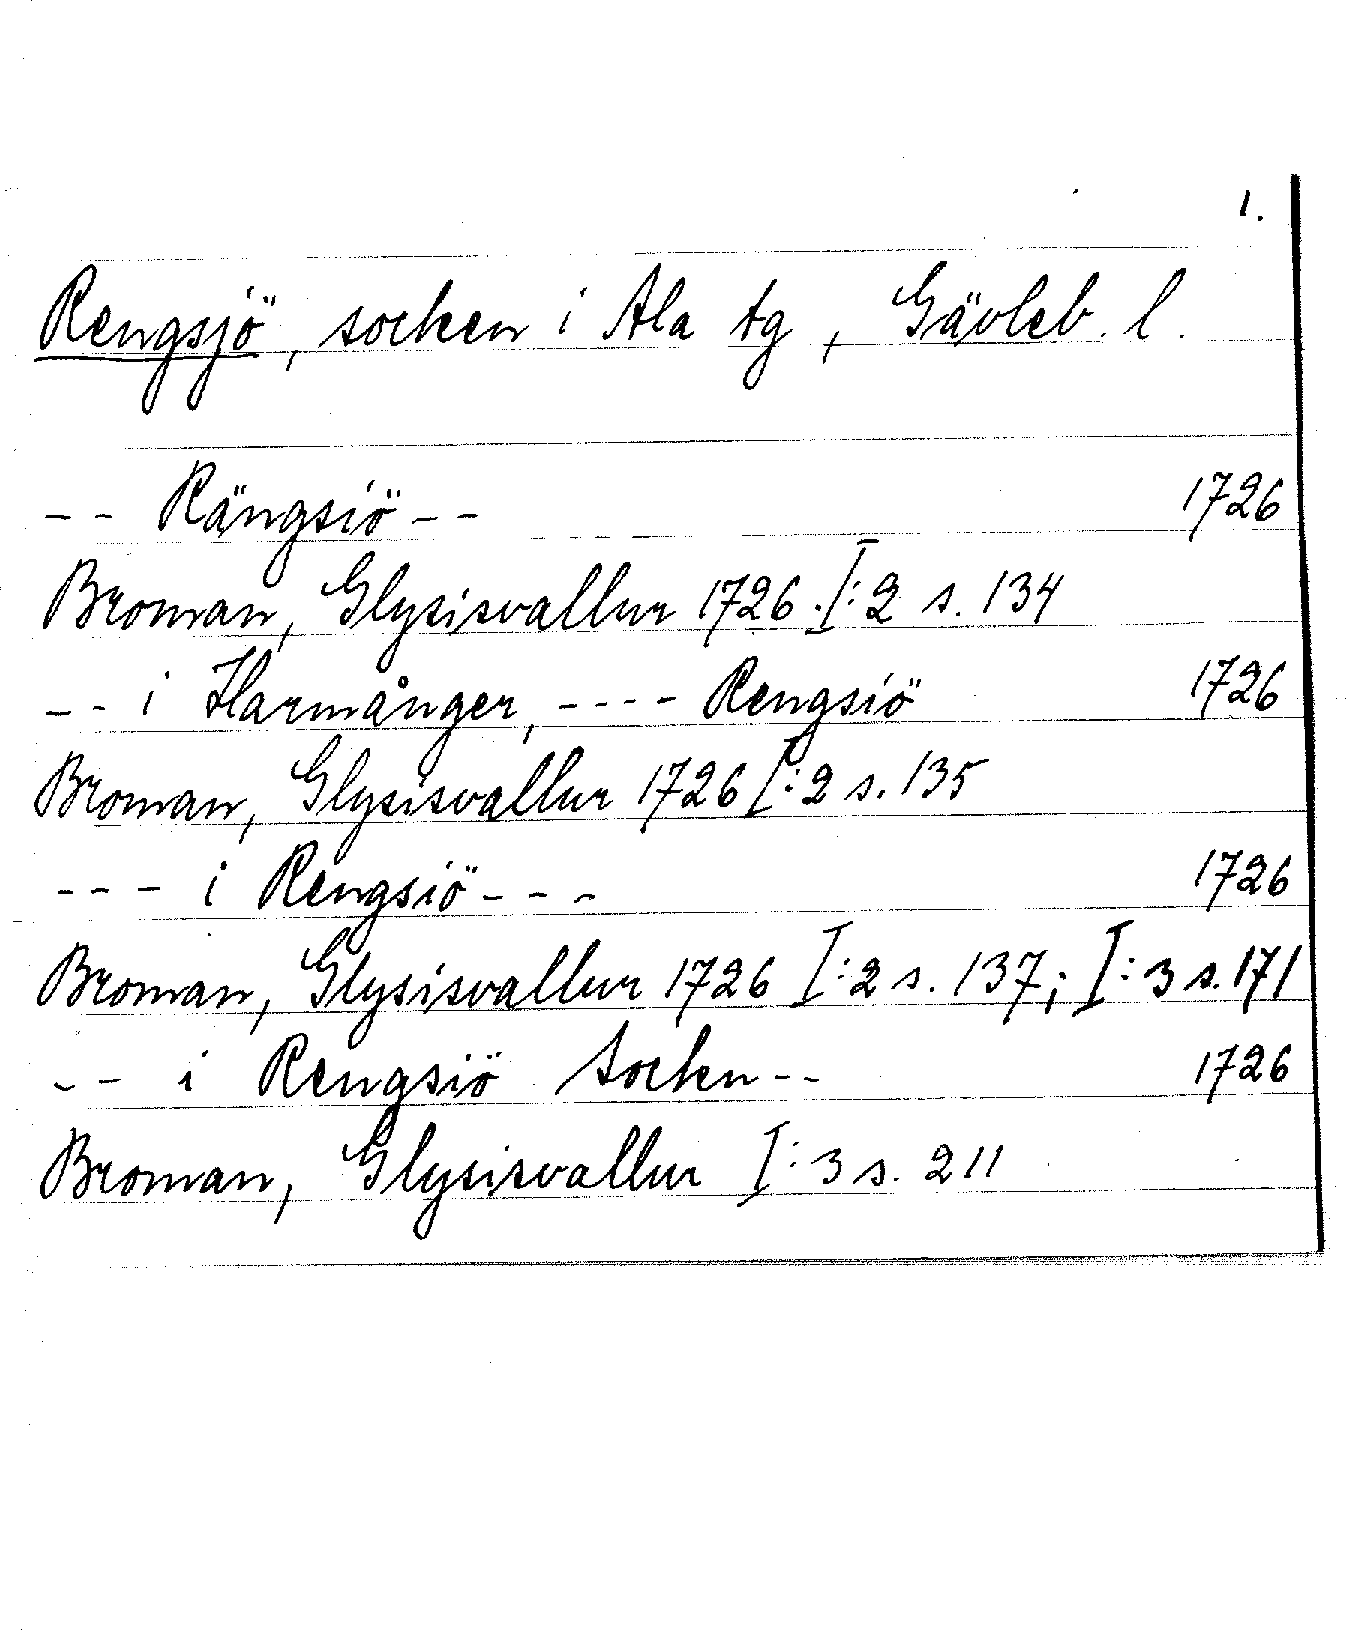 1.
Rengsjö, socken i Ala tg, Gävleb. l.
-- Rängsiö -- 1726
Broman, Glysisvallur 1726. I:2 s. 134
-- i Harmånger, ---- Rengsiö 1726
Broman, Glysisvallur 1726 I:2 s. 135
--- i Rengsiö --- 1726
Broman, Glysisvallur 1726 I:2 s. 137; I:3 s. 171
-- i Rengsiö Sockn -- 1726
Broman, Glysisvallur I:3 s. 211